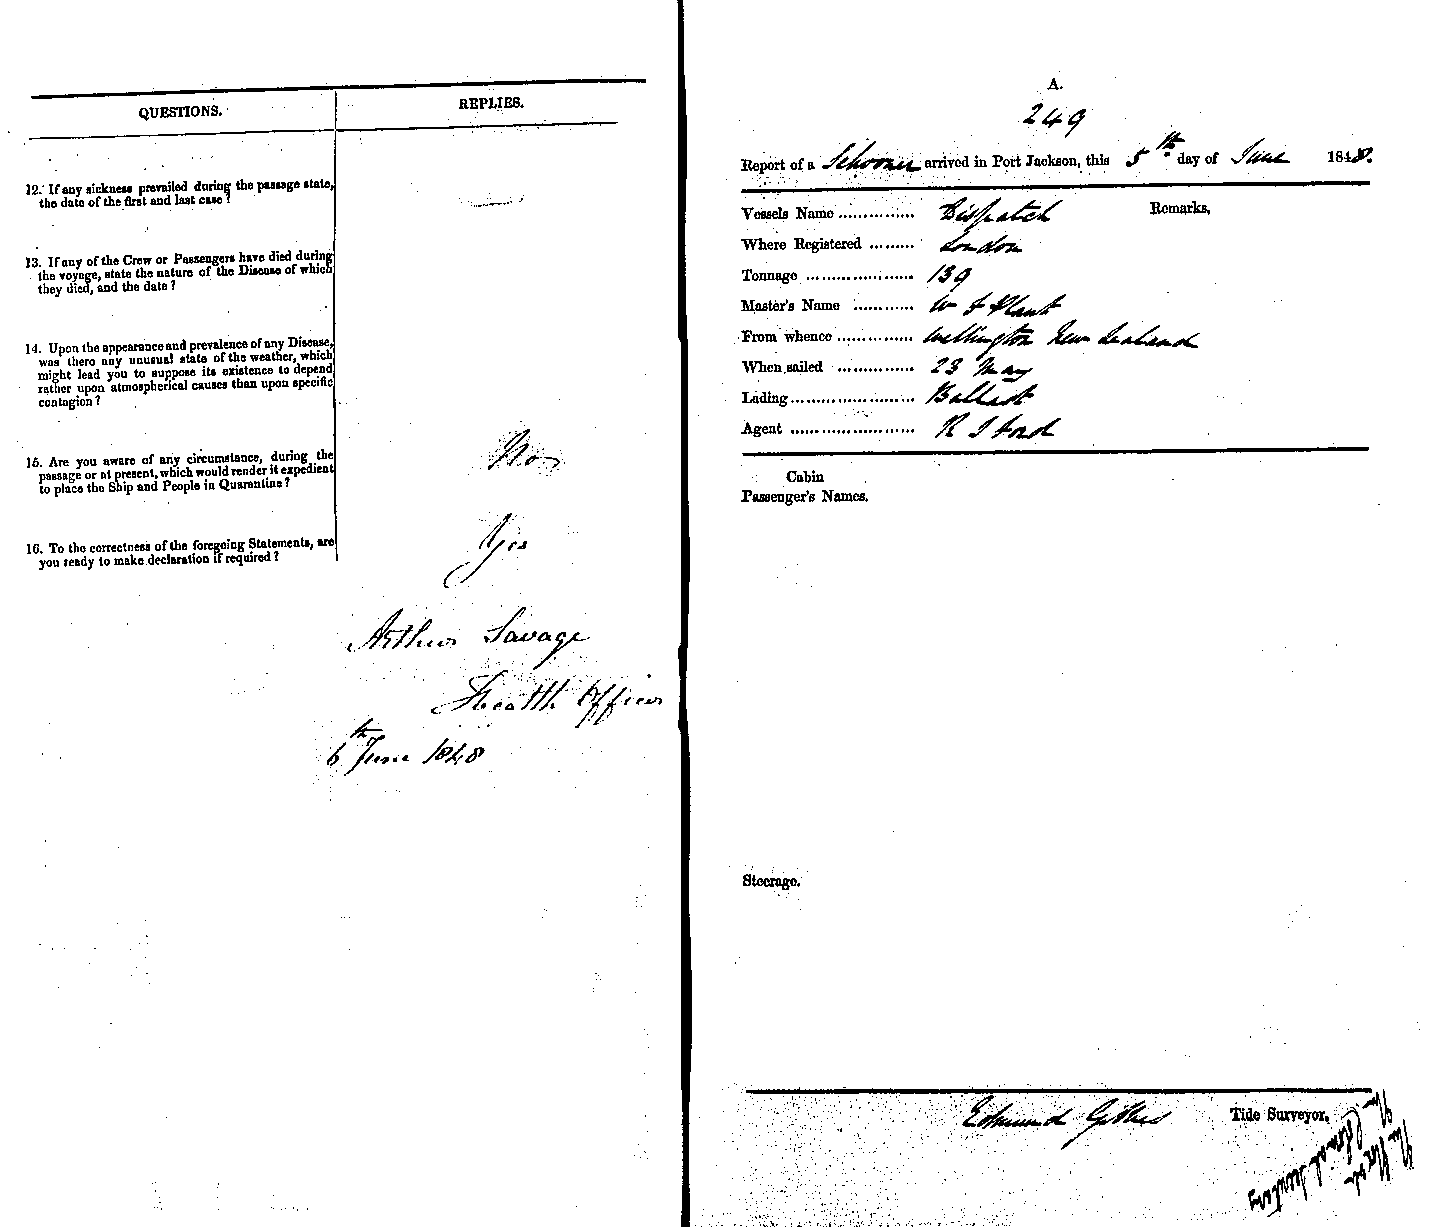 QUESTIONS.
REPLIES.
12. If any sickness prevailed during the passage state,
the date of the first and last case?
13. If any of the Crew or Passengers have died during
the voyage, state the nature of the Disease of which
they died, and the date?
14. Upon the appearance and prevalence of any Disease,
was there any unusual state of the weather, which
might lead you to suppose its existence to depend
rather upon atmospherical causes than upon specific
contagion?
15. Are you aware of any circumstance, during the
passage or at present, which would render it expedient
to place the Ship and People in Quarantine?
No
16. To the correctness of the foregoing Statements, are
you ready to make declaration if required?
Yes
Arthur Savage
Health Officer
6th June 1848
A.
249
Report of a Schooner arrived in Port Jackson, this 5th day of June 1848.
Vessels Name ............... Dispatch
Remarks,
Where Registered ......... London
Tonnage ..................... 139
Master's Name ............ W J Plant
From whence .............. Wellington New Zealand
When sailed ............... 23 May
Lading........................ Ballast
Agent ........................ R I Ford
Cabin
Passenger's Names.
Steerage.
Edmund Gibbes Tide Surveyor.
The Honble
The Colonial Secretary